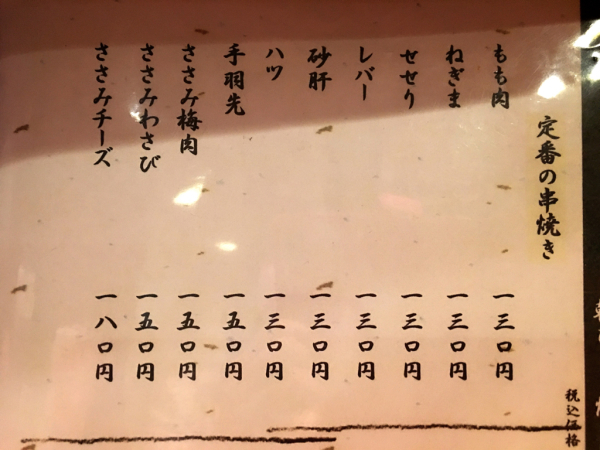 定番の串焼き
もも肉 一三〇円
ねぎま 一三〇円
せせり 一三〇円
レバー 一三〇円
砂肝 一三〇円
ハツ 一三〇円
手羽先 一五〇円
ささみ梅肉 一五〇円
ささみわさび 一五〇円
ささみチーズ 一八〇円
税込価格